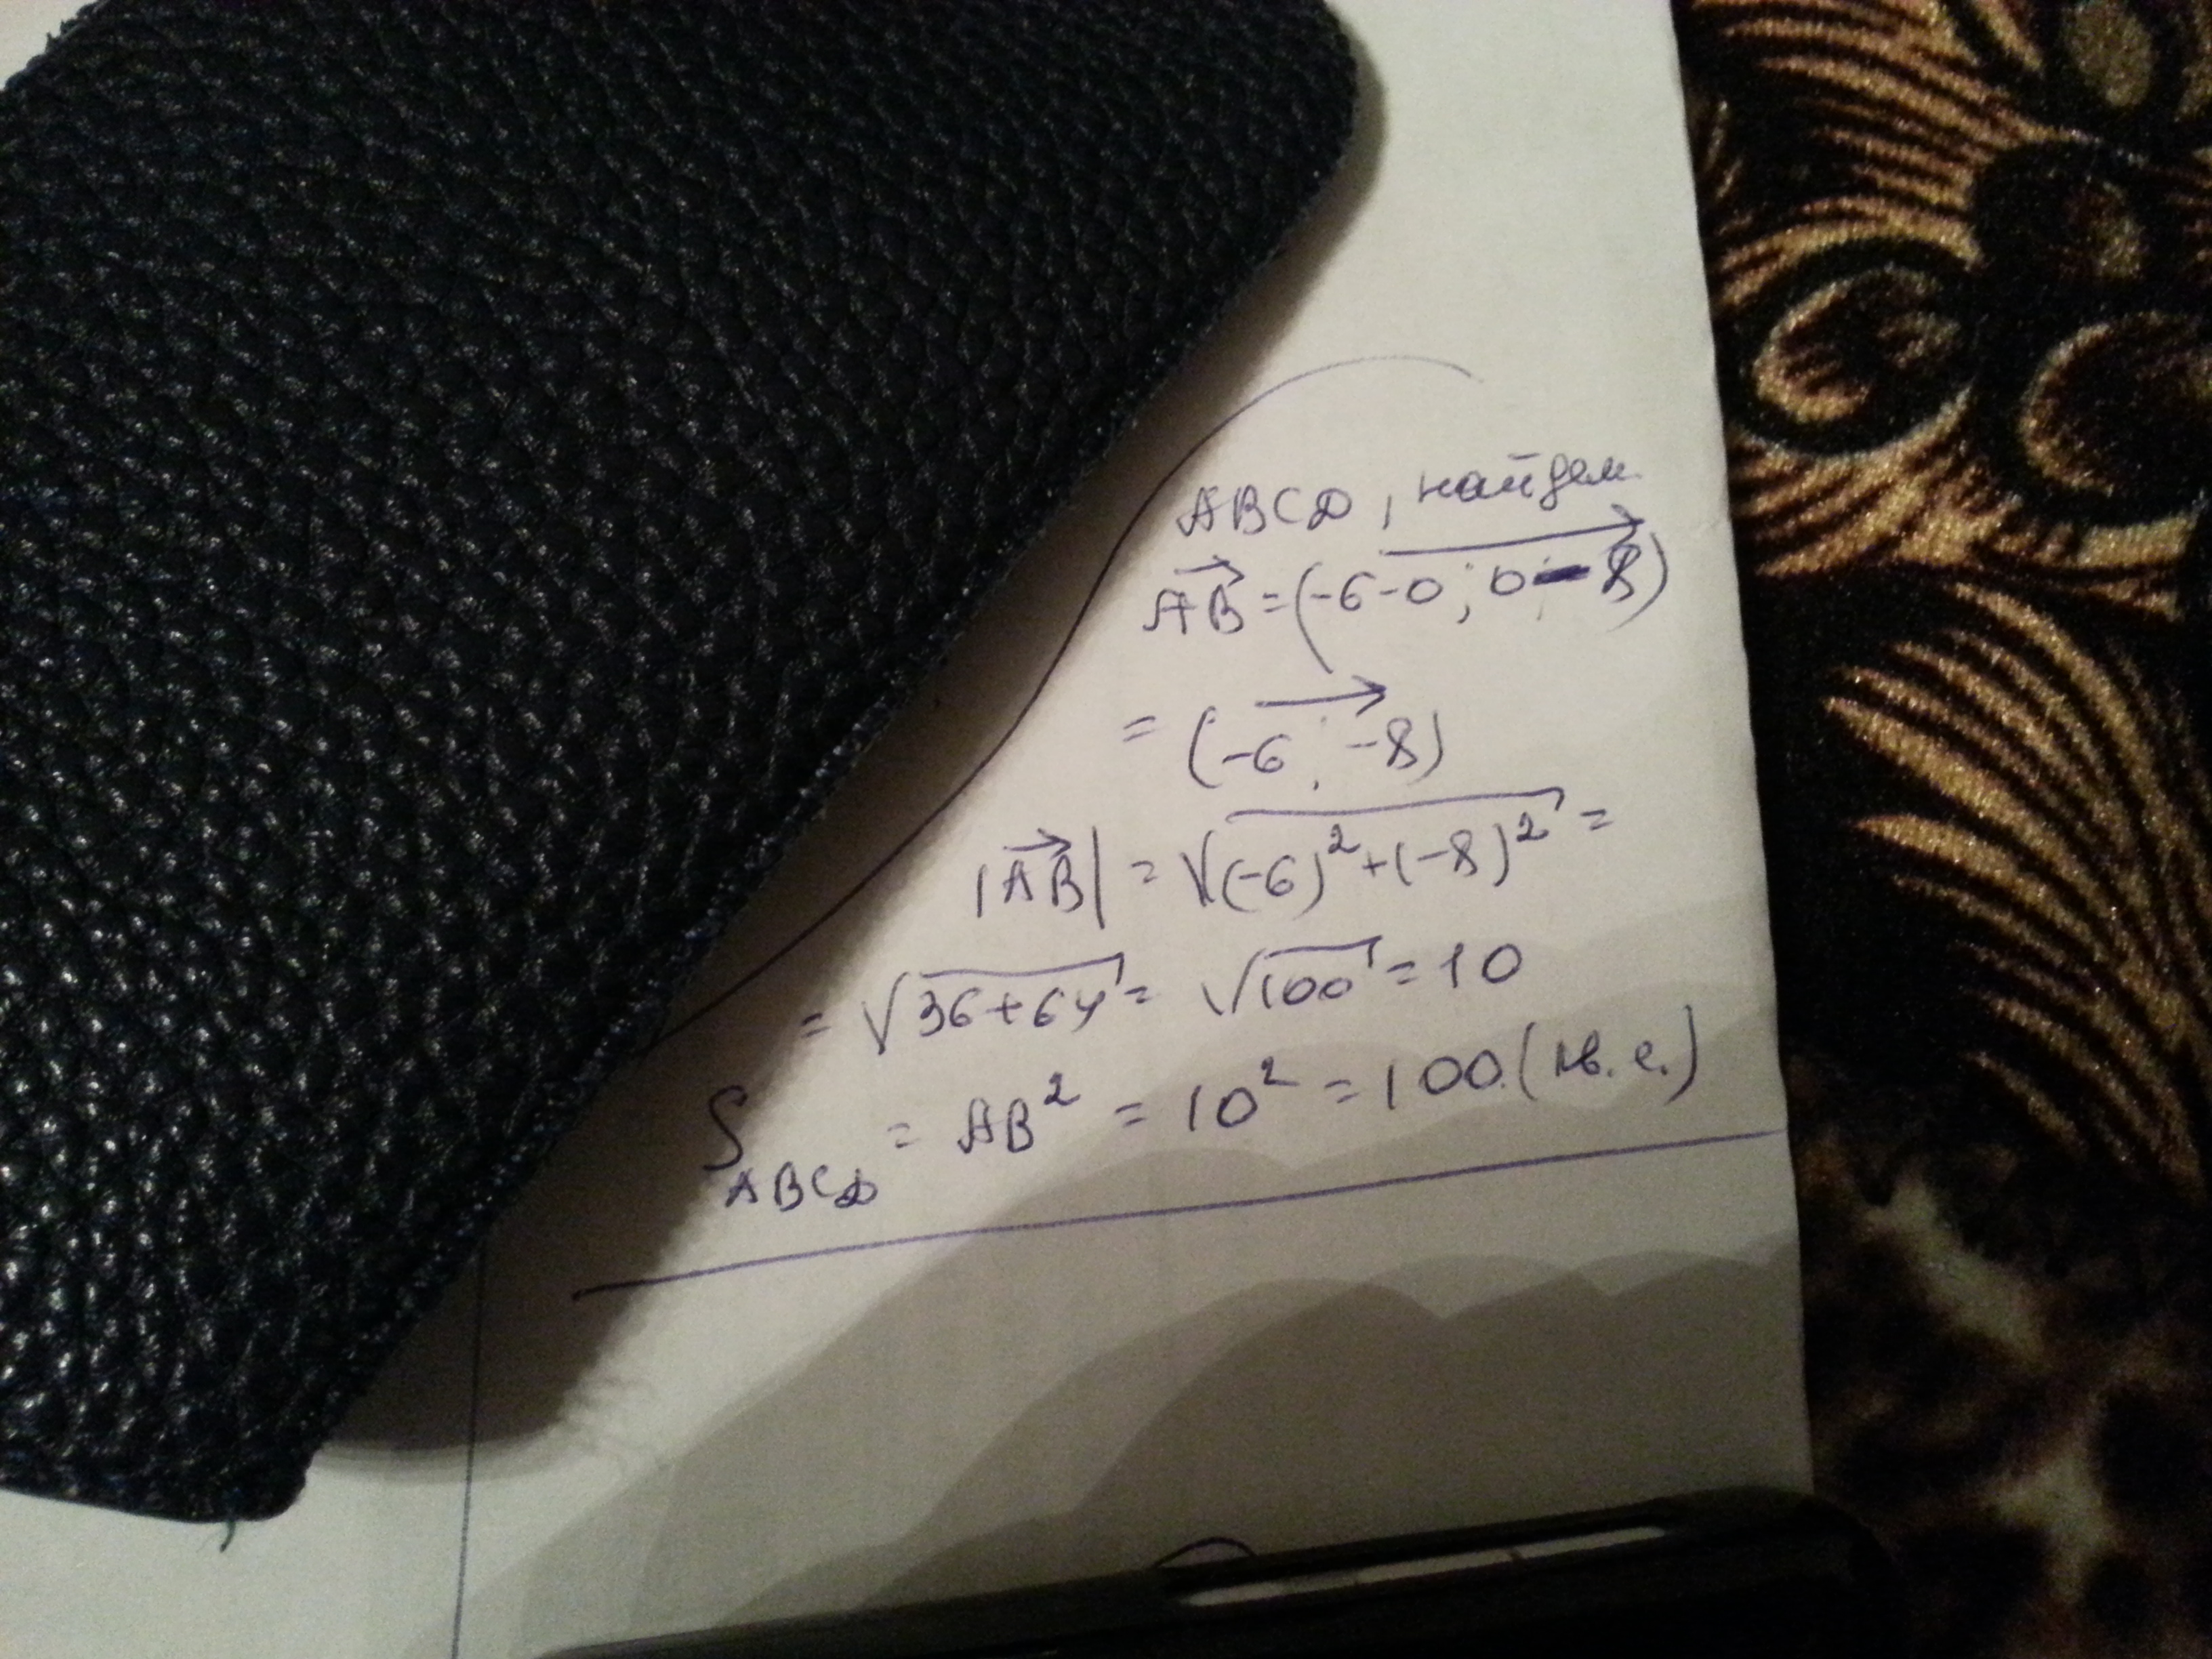 ABCD, найдем
AB = (-6-0; 0-8)
= (-6; -8)
|AB| = √(-6)²+(-8)² =
= √36+64 = √100 = 10
S ABCD = AB² = 10² = 100 (кв. е.)